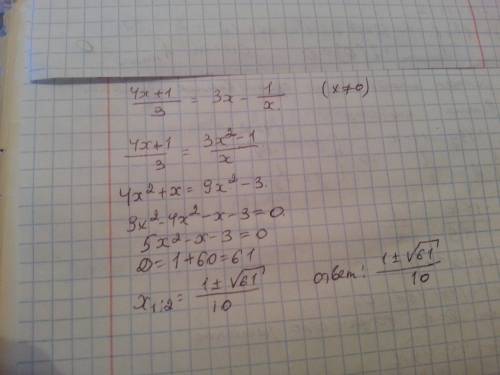 (4x+1)/3 = 3x - 1/x (x≠0)
(4x+1)/3 = (3x²-1)/x
4x²+x = 9x²-3.
9x²-4x²-x-3=0.
5x²-x-3=0
D=1+60=61
x₁;₂ = (1±√61)/10 ответ: (1±√61)/10